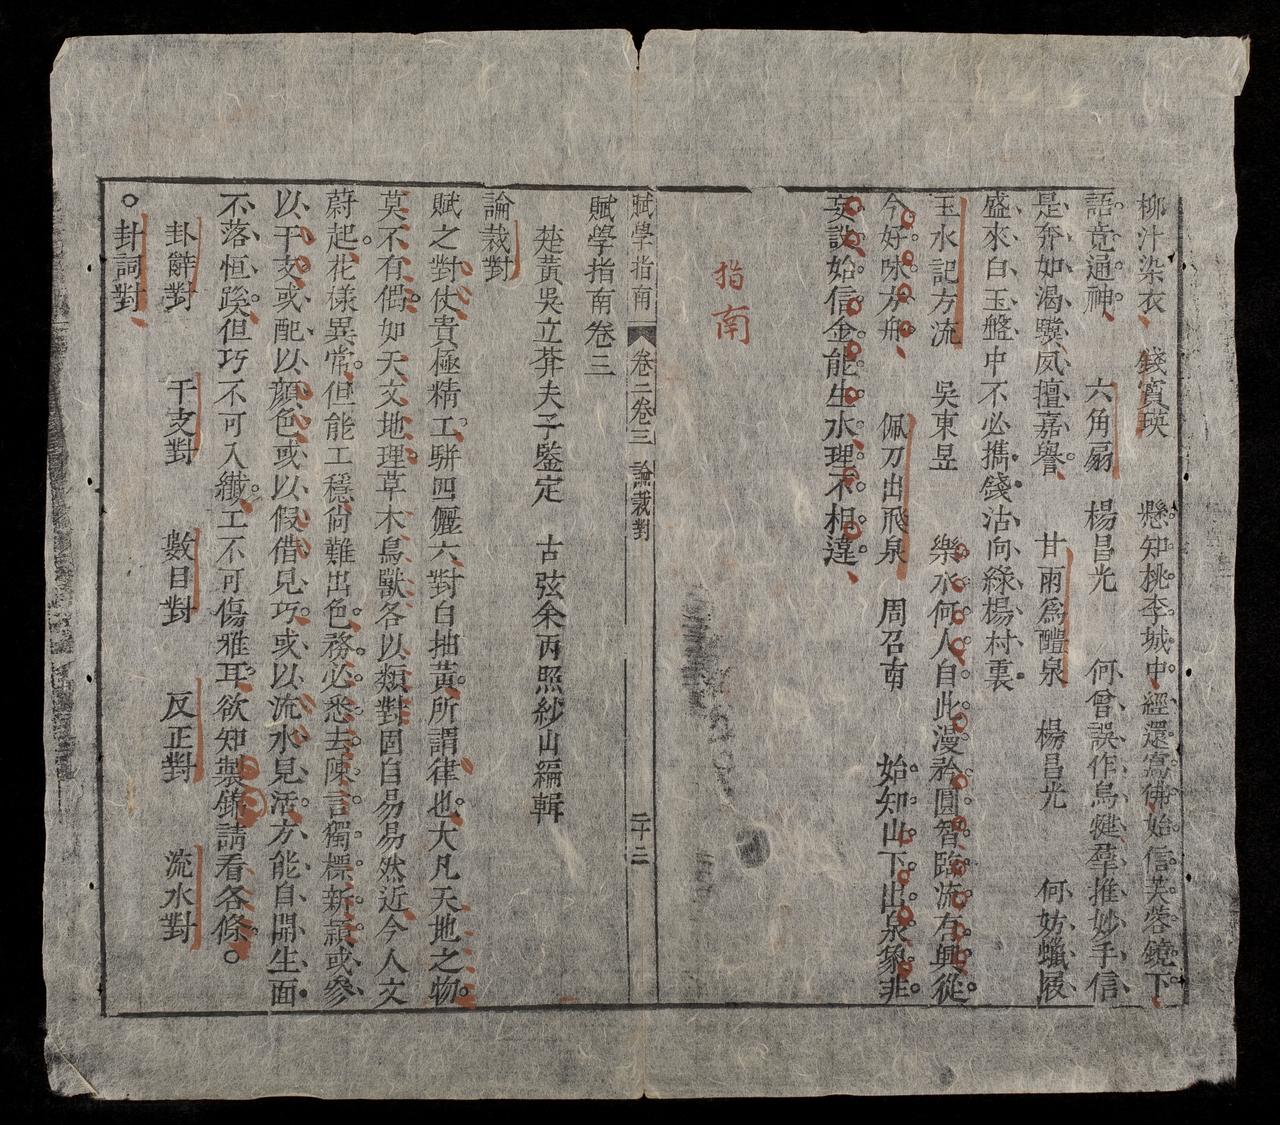 柳汁染衣、錢寶瑛　懸知桃李城中、經還寫佛、始信芙蓉鏡下、
語竟通神、　六角扇　楊昌光　何曾誤作烏犍、羣推妙手、信
是奔如渴驥、夙擅嘉譽、　甘雨爲醴泉　楊昌光　何妨蠟屐
盛來白玉盤中、不必攜錢沽向綠楊村裏
玉水記方流　吳東昱　樂水何人、自此漫矜圓智、臨流有興、從
今好咏方舟、　佩刀出飛泉　周召南　始知山下出泉、象非
妄設、始信金能生水、理不相違、
指南
賦學指南　卷二卷三　論裁對　二十二
賦學指南卷三
楚黃吳立莽夫子鑒定　古弦余丙照紗山編輯
論裁對
賦之對仗貴極精工。騈四儷六、對白抽黃、所謂律也。大凡天地之物。
莫不有偶。如天文地理草木鳥獸、各以類對、固自易易。然近今人文
蔚起。花樣異常。但能工穩、尙難出色。務必悉去陳言、獨標新穎。或參
以干支、或配以顏色、或以假借見巧。或以流水見活。方能自開生面
不落恒蹊。但巧不可入纖。工不可傷雅耳。欲知製錦、請看各條。○
卦辭對　干支對　數目對　反正對　流水對
○卦詞對、